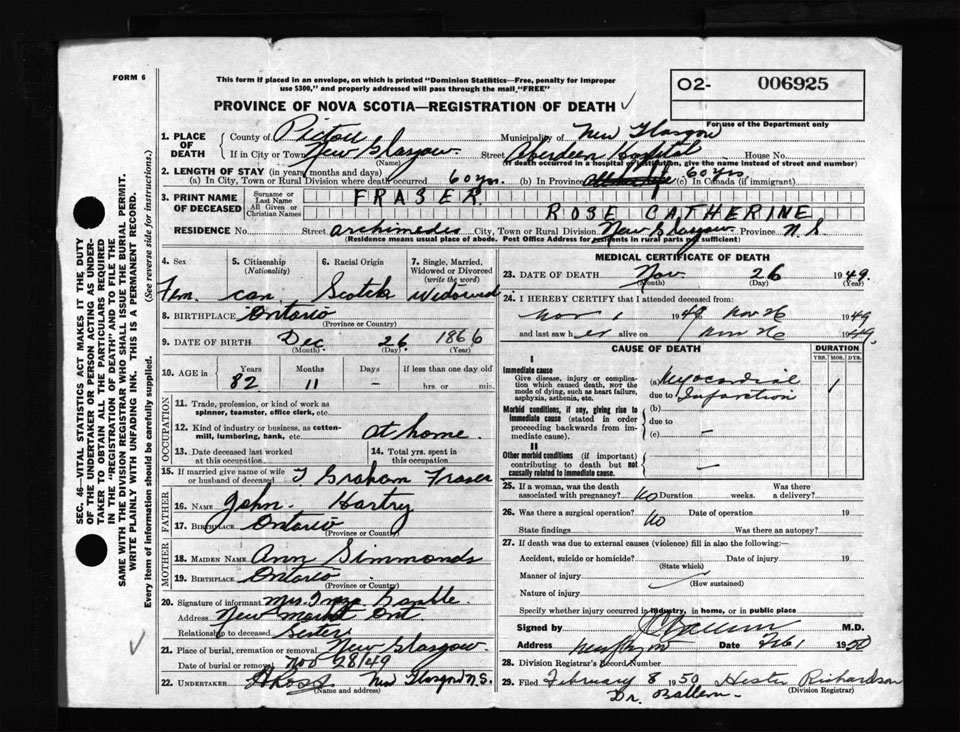 FORM 6
This form if placed in an envelope, on which is printed "Dominion Statistics—Free, penalty for improper
use $300," and properly addressed will pass through the mail "FREE"
O2- 006925
For use of the Department only
PROVINCE OF NOVA SCOTIA—REGISTRATION OF DEATH
1. PLACE OF DEATH
County of Pictou Municipality of New Glasgow
If in City or Town New Glasgow. Street Aberdeen Hospital House No.
(Name) (If death occurred in a hospital or institution, give the name instead of street and number)
2. LENGTH OF STAY (in years, months and days)
(a) In City, Town or Rural Division where death occurred 60 yrs. (b) In Province (c) In Canada (if immigrant) 60 yrs
3. PRINT NAME OF DECEASED
Surname or Last Name FRASER.
All Given or Christian Names ROSE CATHERINE
RESIDENCE No. Street Archimedes City, Town or Rural Division New Glasgow Province N.S
(Residence means usual place of abode. Post Office Address for residents in rural parts not sufficient)
4. Sex Fem.
5. Citizenship (Nationality) Can.
6. Racial Origin Scotch
7. Single, Married, Widowed or Divorced (write the word) Widowed
8. BIRTHPLACE Ontario
(Province or Country)
9. DATE OF BIRTH Dec 26 1866
(Month) (Day) (Year)
10. AGE in Years 82 Months 11 Days – If less than one day old hrs. or min.
OCCUPATION
11. Trade, profession, or kind of work as
spinner, teamster, office clerk, etc.
12. Kind of industry or business, as cotton-
mill, lumbering, bank, etc. at home.
13. Date deceased last worked
at this occupation
14. Total yrs. spent in
this occupation
15. If married give name of wife
or husband of deceased Graham Fraser
FATHER
16. NAME John Hartry
17. BIRTHPLACE Ontario
(Province or Country)
MOTHER
18. MAIDEN NAME Ann Simmonds
19. BIRTHPLACE Ontario
(Province or Country)
20. Signature of informant Mrs.
Address New Market Ont.
Relationship to deceased Sister
21. Place of burial, cremation or removal New Glasgow.
Date of burial or removal Nov 28/49
22. UNDERTAKER Ross New Glasgow N.S.
(Name and address)
MEDICAL CERTIFICATE OF DEATH
23. DATE OF DEATH Nov. 26 1949.
(Month) (Day) (Year)
24. I HEREBY CERTIFY that I attended deceased from:
Nov 1 19 Nov 26 1949
and last saw her alive on Nov 26 1949
CAUSE OF DEATH
DURATION
YRS. MOS. DYS.
I
Immediate cause
Give disease, injury or complica-
tion which caused death, NOT the
mode of dying, such as heart failure,
asphyxia, asthenia, etc.
(a) Myocardial 1
due to Infarction
Morbid conditions, if any, giving rise to
immediate cause (stated in order
proceeding backwards from im-
mediate cause).
(b)
due to
(c) –
II
Other morbid conditions (if important)
contributing to death but not
causally related to immediate cause. –
25. If a woman, was the death
associated with pregnancy? No Duration weeks. Was there
a delivery?
26. Was there a surgical operation? No Date of operation 19
State findings Was there an autopsy?
27. If death was due to external causes (violence) fill in also the following:—
Accident, suicide or homicide? Date of injury 19
(State which)
Manner of injury
(How sustained)
Nature of injury
Specify whether injury occurred in industry, in home, or in public place
Signed by M.D.
Address Date Feb 1 1950
28. Division Registrar's Record Number
29. Filed February 8 1950 Hester Richardson
Dr. Ballem. (Division Registrar)
SEC. 46—VITAL STATISTICS ACT MAKES IT THE DUTY
OF THE UNDERTAKER OR PERSON ACTING AS UNDER-
TAKER TO OBTAIN ALL THE PARTICULARS REQUIRED
IN THE "REGISTRATION OF DEATH" AND TO FILE THE
SAME WITH THE DIVISION REGISTRAR WHO SHALL ISSUE THE BURIAL PERMIT.
WRITE PLAINLY WITH UNFADING INK. THIS IS A PERMANENT RECORD.
Every item of information should be carefully supplied. (See reverse side for instructions.)